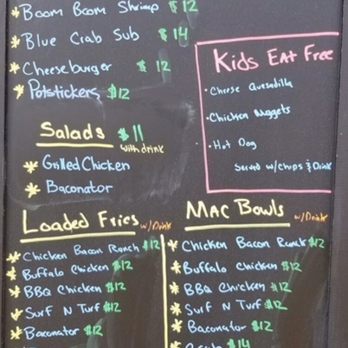 * Boom Boom Shrimp $12
* Blue Crab Sub $14
* Cheeseburger $12
* Potstickers $12
Salads $11
with drink
* Grilled Chicken
* Baconator
Kids Eat Free
• Cheese Quesadilla
• Chicken Nuggets
• Hot Dog
Served w/chips & Drink
Loaded Fries w/Drink
* Chicken Bacon Ranch $12
* Buffalo Chicken $12
* BBQ Chicken $12
* Surf N Turf $12
* Baconator $12
Mac Bowls w/Drink
* Chicken Bacon Ranch $12
* Buffalo Chicken $12
* BBQ Chicken $12
* Surf N Turf $12
* Baconator $12
* $14